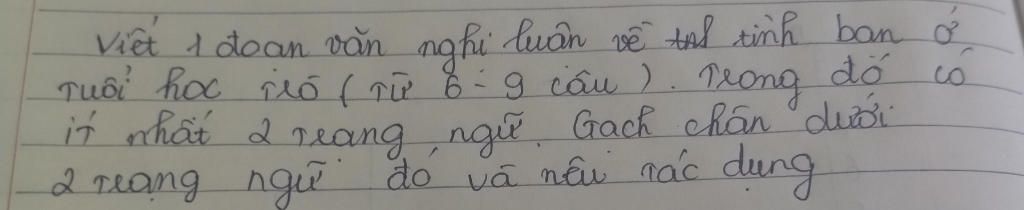 Viết 1 đoạn văn nghị luận về tình bạn ở
tuổi học trò (Từ 6 - 9 câu). Trong đó có
ít nhất 2 trạng ngữ. Gạch chân dưới
2 trạng ngữ đó và nêu tác dụng